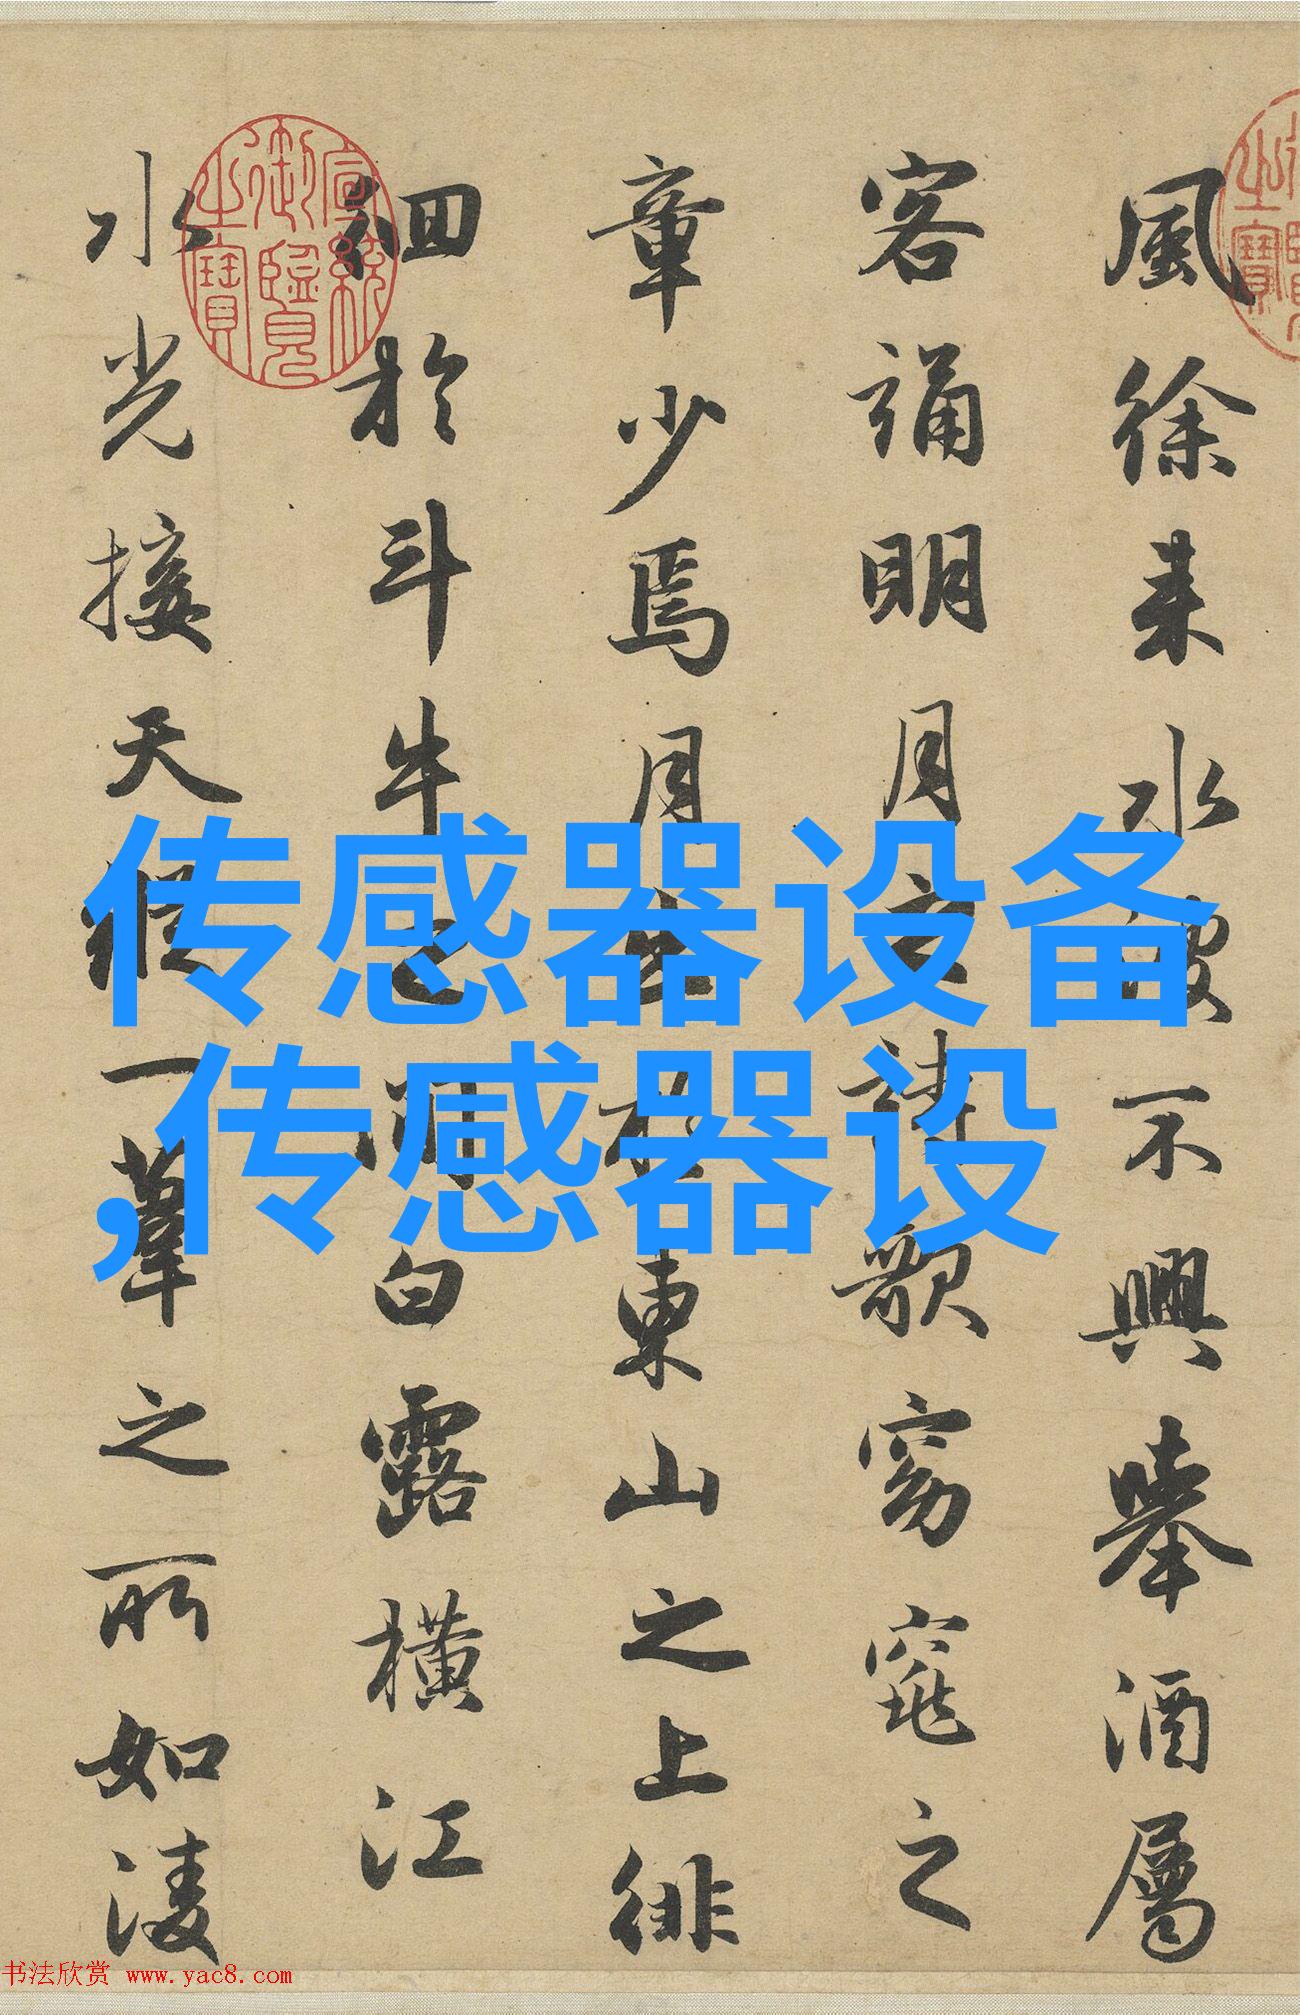 風徐来水波不興舉酒屬
客誦明月之詩歌窈窕之
章少焉月出於東山之上徘
徊於斗牛之間白露橫江
水光接天縱一葦之所如淩
宣統御覽之寶
传感器设备
,传感器设
书法欣赏 www.yac8.com